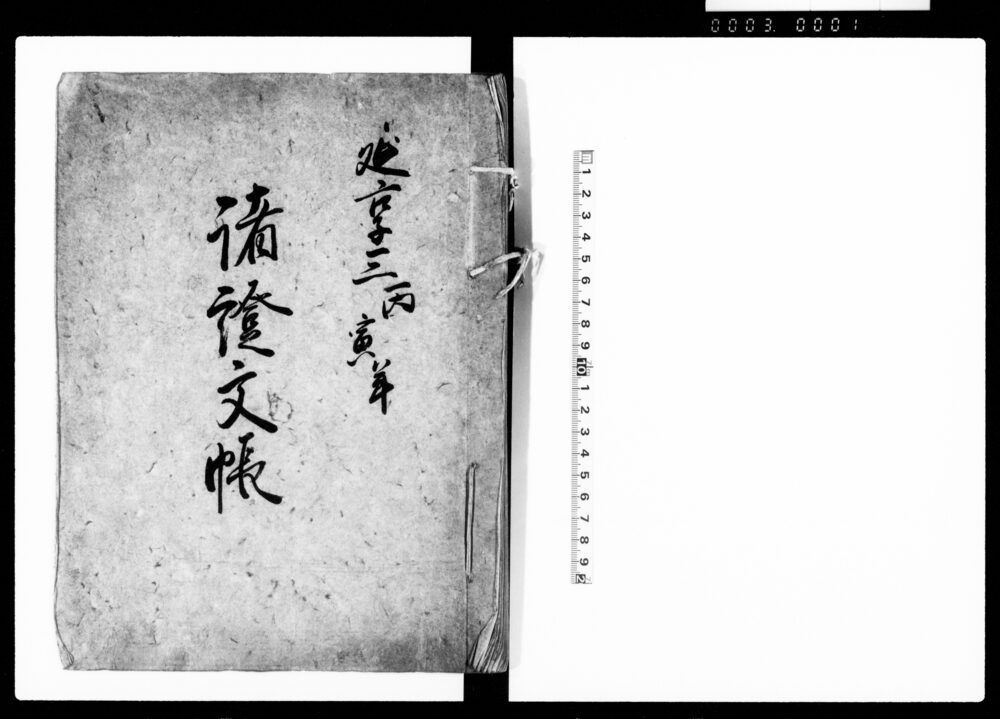 0003. 0001
延享三丙寅年
諸證文帳
1 2 3 4 5 6 7 8 9 10 1 2 3 4 5 6 7 8 9 2